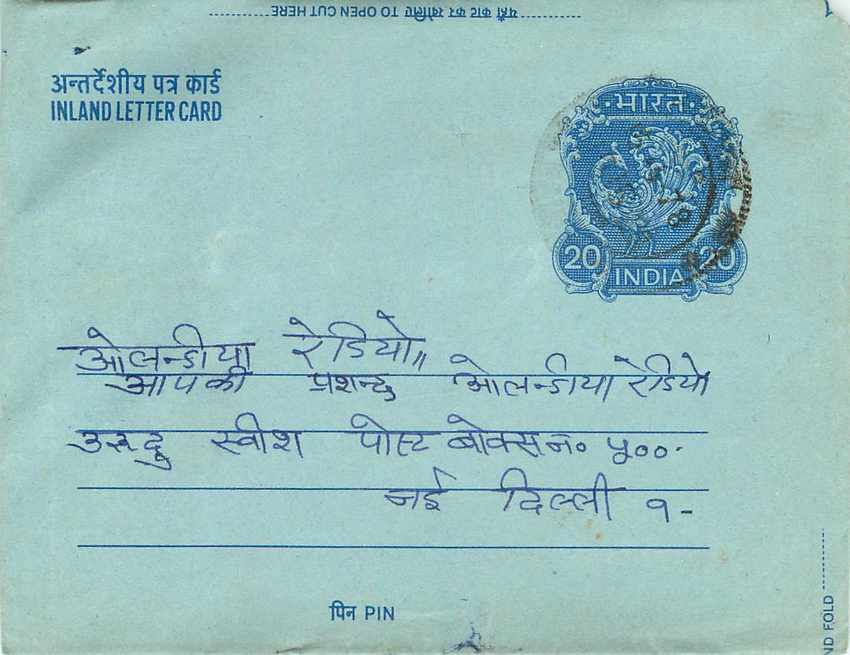 यहाँ काट कर खोलिए TO OPEN CUT HERE
अन्तर्देशीय पत्र कार्ड
INLAND LETTER CARD
भारत
20 20
INDIA
ओलन्डीया रेडियो॥
आपकी प्रशन्द ओलन्डीया रेडियो
उरुदु स्वीश पोस्ट बोक्स न० ५००-
नई दिल्ली १-
पिन PIN
ND FOLD